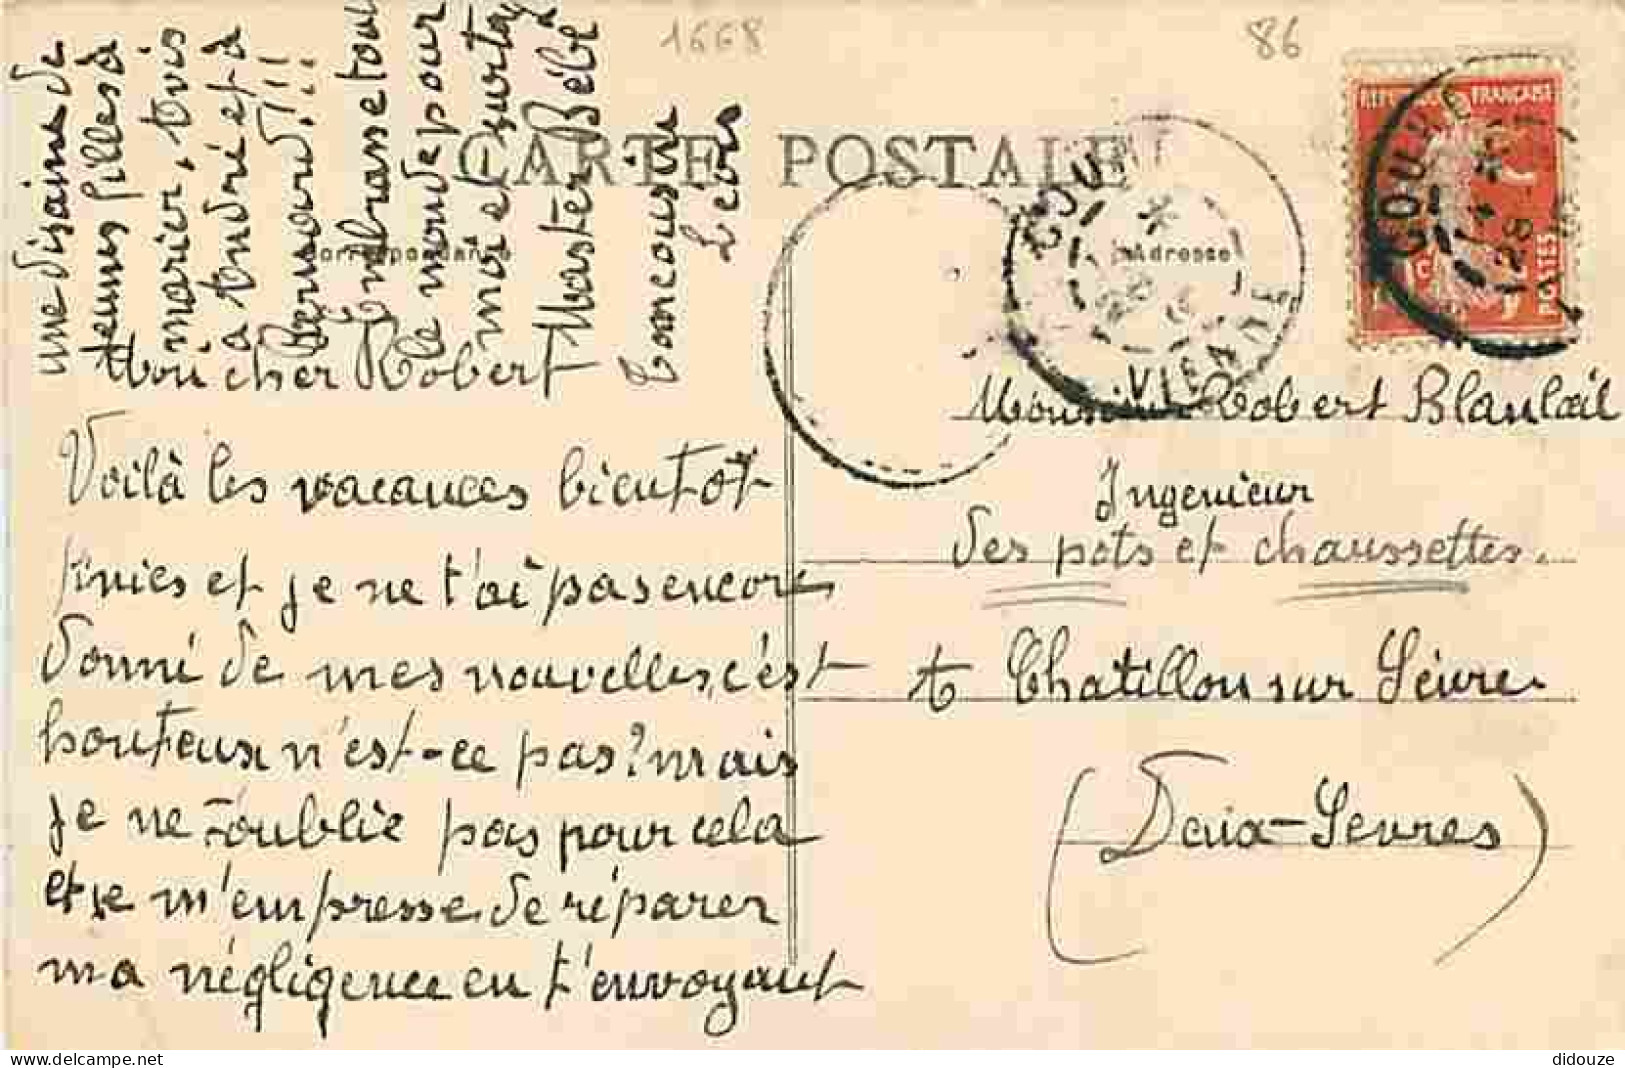 1668
86
CARTE POSTALE
Correspondance
Adresse
REPUBLIQUE FRANÇAISE
POSTES
COUHÉ
VIENNE
Mon cher Robert
Voilà les vacances bientot
finies et je ne t'ai pas encore
donné de mes nouvelles, c'est
honteux n'est-ce pas? mais
je ne t'oublie pas pour cela
et je m'empresse de réparer
ma négligence en t'envoyant
une disaine de
jeunes filles à
marier, tu is
à André et à
Bernard!!!
Embrasse tout
le monde pour
moi et surtout
Master Bébé
Ton cousin
Léon
Monsieur Robert Blanloeil
Ingenieur
des pots et chaussettes.
à Chatillon sur Sèvre
(Deux-Sevres)
didouze